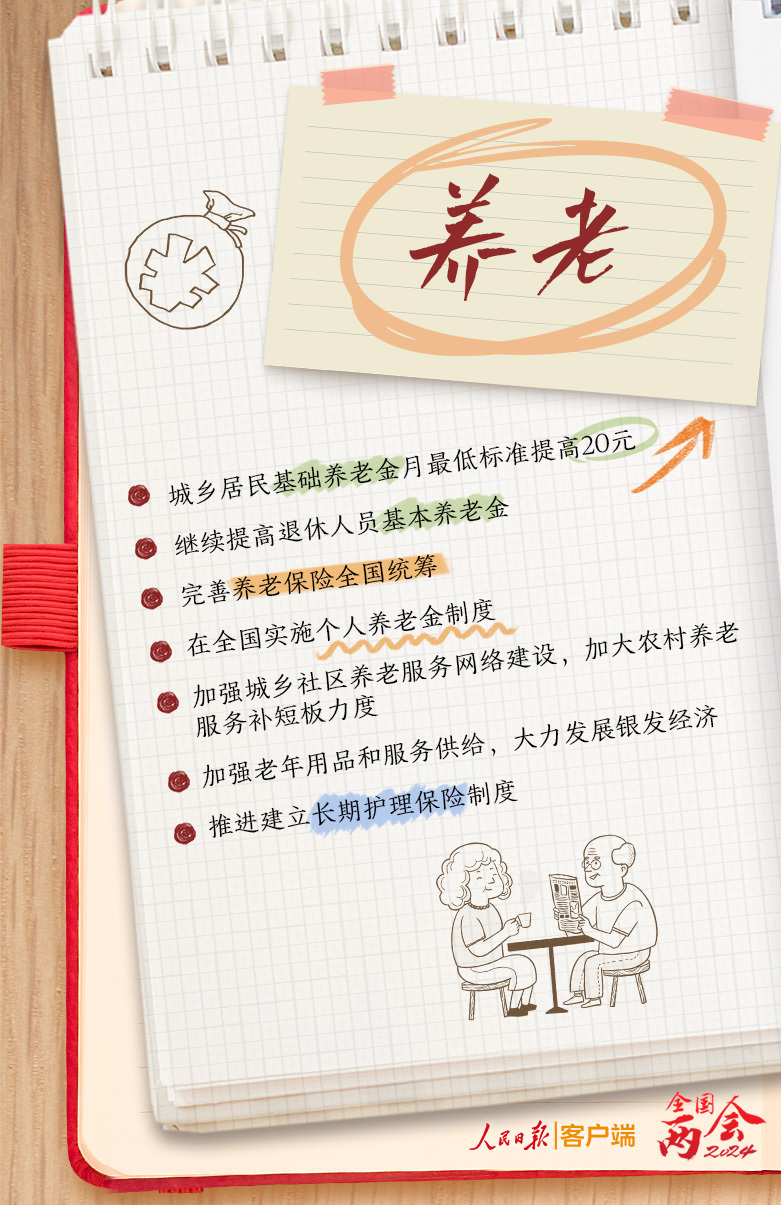 养老
城乡居民基础养老金月最低标准提高20元
继续提高退休人员基本养老金
完善养老保险全国统筹
在全国实施个人养老金制度
加强城乡社区养老服务网络建设，加大农村养老
服务补短板力度
加强老年用品和服务供给，大力发展银发经济
推进建立长期护理保险制度
人民日报|客户端
全国人
两会
2024